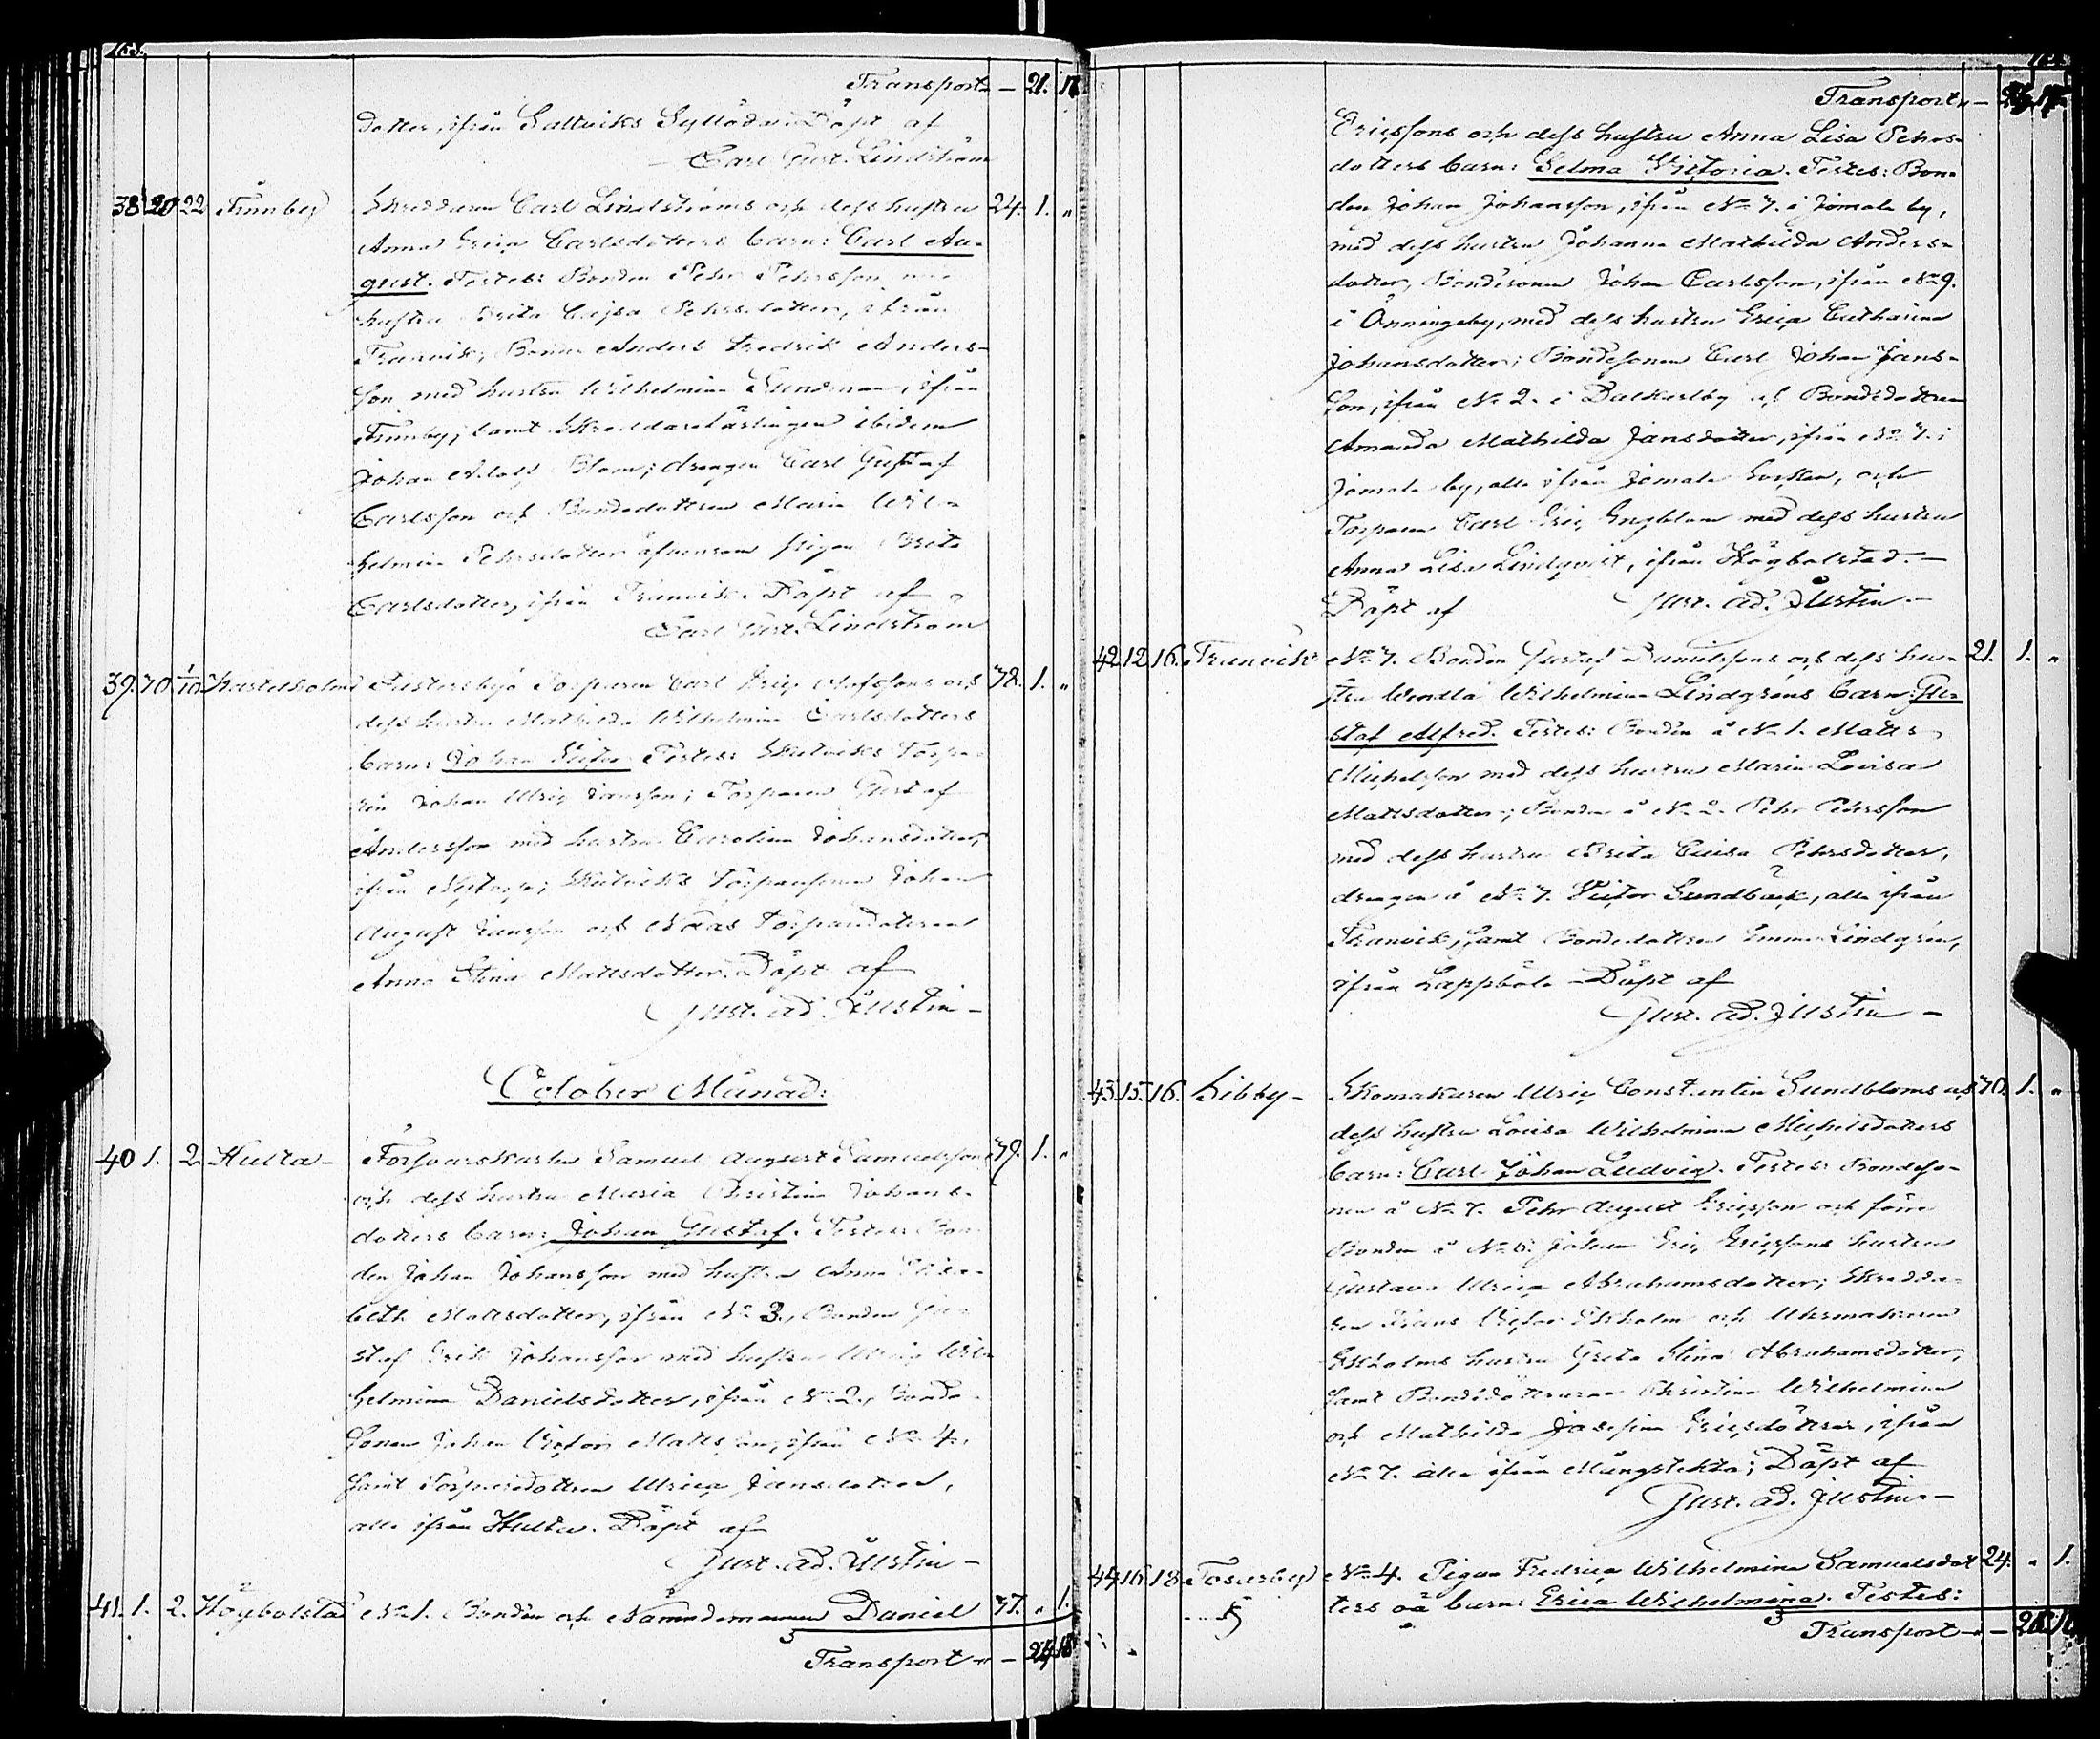 Transport - 21. 17
dotter, ifrån Saltviks Syllöda. Döpt af
Carl Gust. Lindström
38. 20 22 Finnby Skreddaren Carl Lindströms och dess hustru 24. 1. "
Anna Erica Carlsdotters barn: Carl Au-
gust. Testes: Bonden Pehr Pehrsson med
hustru Brita Cajsa Pehrsdotter, ifrån
Tranvik; Bonden Anders Fredrik Anders-
son med hustru Wilhelmina Sundman, ifrån
Finnby; samt Skreddarelärlingen ibidem
Johan Adolf Blom; drengen Carl Gustaf
Carlsson och Bondedottren Maria Wil-
helmina Pehrsdotter äfvensom pigan Brita
Carlsdotter, ifrån Tranvik. Döpt af
Carl Gust. Lindström
39. 1/10 Kastelholm Torparen Carl Eric Olofssons och 78. 1. "
dess hustru Mathilda Wilhelmina Carlsdotters
barn: Johan Victor. Testes: Skutviks Torpa-
ren Johan Ulric Jansson; Torparen Gustaf
Andersson med hustru Carolina Johansdotter,
ifrån Nytorp; Skutviks Torparesonen Johan
August Jansson och Näås Torparedottren
Anna Stina Mattsdotter. Döpt af
Gust. Ad. Justin -
October Månad:
40 1. 2. Hulta - Försvarskarlen Samuel August Samuelssons 79. 1. "
och dess hustru Maria Christina Johans-
dotters barn: Johan Gustaf. Testes: Bon-
den Johan Johansson med hustru Anna Elisa-
beth Mattsdotter, ifrån No 3., Bonden Gu-
staf Erik Johansson med hustru Ulrica Wil-
helmina Danielsdotter, ifrån No 2., Bonde-
sonen Johan Victor Mattsson, ifrån No 4,
samt Torparedottren Ulrica Jansdotter,
alla ifrån Hulta. Döpt af
Gust. Ad. Justin -
41. 1. 2. Högbolstad No 1. Bonden och Nämndemannen Daniel 37. " 1.
3
Transport - 24 18
Transport -
Ericssons och dess hustru Anna Lisa Pehrs-
dotters barn: Selma Victoria. Testes: Bon-
den Johan Johansson, ifrån No 7. i Jomala by,
med dess hustru Johanna Mathilda Anders-
dotter, Bondesonen Johan Carlsson, ifrån No 9.
i Önningeby, med dess hustru Erica Catharina
Johansdotter; Bondesonen Carl Johan Jans-
son, ifrån No 2. i Dalkarlby och Bondedottren
Amanda Mathilda Jansdotter, ifrån No 7. i
Jomala by, alla ifrån Jomala Socken, och
Torparen Carl Eric Engblom med dess hustru
Anna Lisa Lindqvist, ifrån Högbolstad. -
Döpt af Gust. Ad. Justin. -
42 12 16. Tranvik No 7. Bonden Gustaf Danielssons och dess hu- 21. 1. "
stru Wendla Wilhelmina Lindgréns barn: Gu-
staf Alfred. Testes: Bonden å No 1. Matts
Michelsson med dess hustru Maria Lovisa
Mattsdotter; Bonden å No 2. Pehr Pehrsson
med dess hustru Brita Caisa Pehrsdotter,
drengen å No 7. Victor Sundbäck, alla ifrån
Tranvik, samt Bondedottren Emma Lindgrén,
ifrån Lappböle - Döpt af
Gust. Ad. Justin -
43 15. 16. Sibby - Skomakaren Ulric Constantin Sundbloms och 70. 1. "
dess hustru Lovisa Wilhelmina Michelsdotters
barn: Carl Johan Ludvig. Testes: Bondeso-
nen å No 7. Pehr August Ericsson och förre
Bonden å No 6. Johan Eric Ericssons hustru
Gustava Ulrica Abrahamsdotter; Skredda-
ren Frans Victor Ekholm och Uhrmakaren
Ekholms hustru Greta Stina Abrahamsdotter;
samt Bondedöttrarna Christina Wilhelmina
och Mathilda Josefina Ericsdöttrar, ifrån
No 7. alla ifrån Mångstekta; Döpt af
Gust. Ad. Justin -
44 16 18 Tosarby No 4. Pigan Fredrica Wilhelmina Samuelsdot 24. " 1.
5 ters oä barn: Erica Wilhelmina. Testes:
3
Transport -